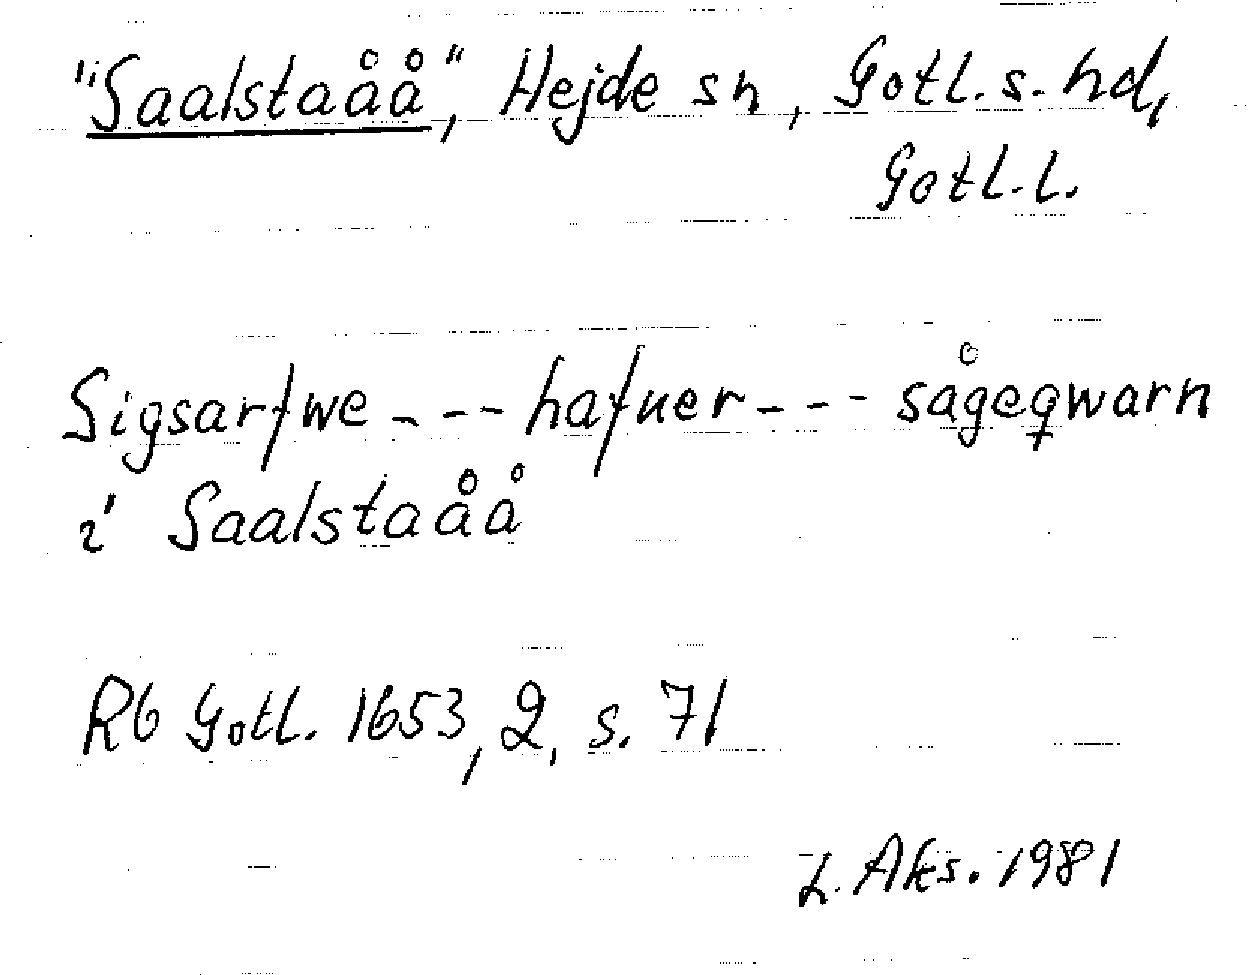 "Saalstaåå", Hejde sn, Gotl. s. hd,
Gotl. l.
Sigsarfwe --- hafuer --- sågeqwarn
i Saalstaåå
Rb Gotl. 1653, 2, s. 71
L. Aks. 1981